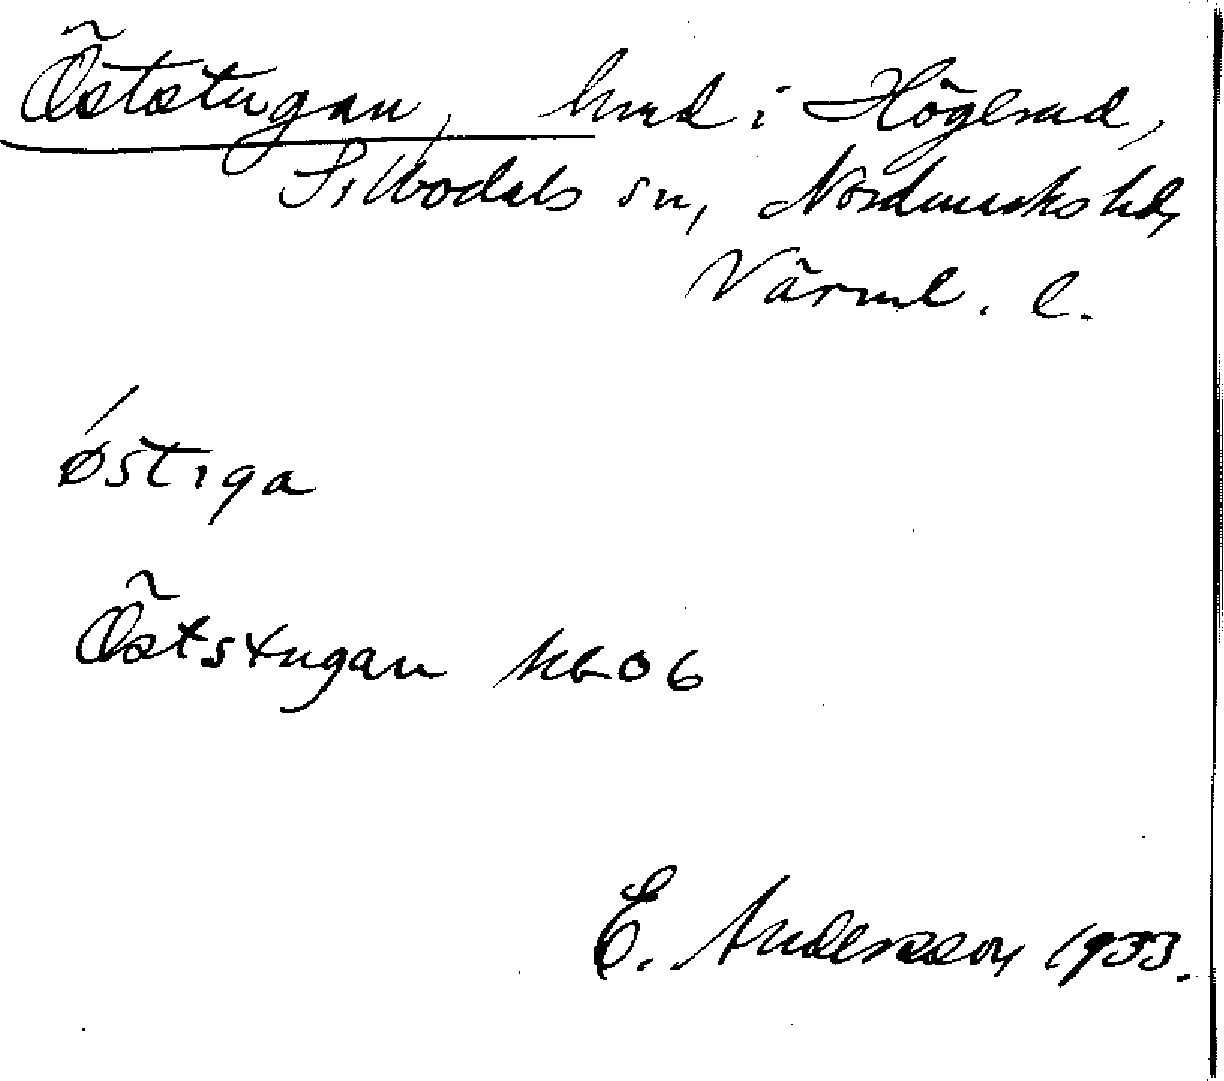 Öststugan, hmd i Högerud,
Sillbodals sn, Nordmarks hd,
Värml. l.
östiga
Öststugan kb 06
E. Andersson 1933.